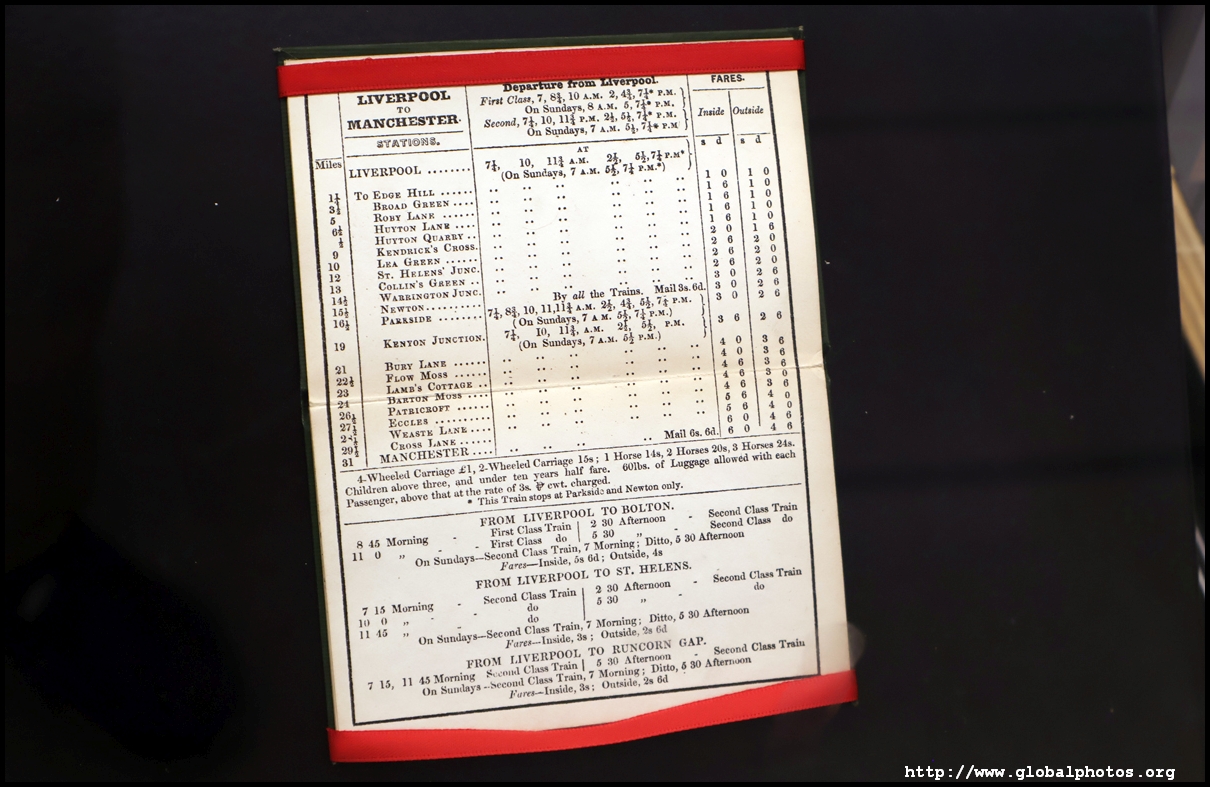 LIVERPOOL
TO
MANCHESTER.
STATIONS.
Departure from Liverpool.
First Class, 7, 8¾, 10 A.M. 2, 4¾, 7¼* P.M.
On Sundays, 8 A.M. 5, 7¼* P.M.
Second, 7¼, 10, 11¾ P.M. 2½, 5½, 7¼* P.M.
On Sundays, 7 A.M. 5½, 7¼* P.M
FARES.
Inside Outside
s d s d
Miles
AT
LIVERPOOL ........ 7¼, 10, 11¾ A.M. 2½, 5½, 7¼ P.M*
(On Sundays, 7 A.M. 5½, 7¼ P.M.*)
1¼ To EDGE HILL ...... 1 0 1 0
3½ BROAD GREEN .... 1 6 1 0
5 ROBY LANE ...... 1 6 1 0
6½ HUYTON LANE .... 1 6 1 0
½ HUYTON QUARRY .. 1 6 1 0
9 KENDRICK'S CROSS. 2 0 1 6
10 LEA GREEN ...... 2 6 2 0
12 ST. HELENS' JUNC. 2 6 2 0
13 COLLIN'S GREEN .. 2 6 2 0
14½ WARRINGTON JUNC. 3 0 2 6
15½ NEWTON.......... By all the Trains. Mail 3s. 6d. 3 0 2 6
16½ PARKSIDE ........ 7¼, 8¾, 10, 11, 11¾ A.M. 2½, 4¾, 5½, 7¼ P.M. 3 0 2 6
(On Sundays, 7 A.M. 5½, 7¼ P.M.)
19 KENYON JUNCTION. 7¼, 10, 11¾, A.M. 2½, 5½, P.M. 3 6 2 6
(On Sundays, 7 A.M. 5½ P.M.)
21 BURY LANE ...... 4 0 3 6
22½ FLOW MOSS ...... 4 0 3 6
23 LAMB'S COTTAGE .. 4 6 3 6
24 BARTON MOSS .... 4 6 3 0
26½ PATRICROFT ...... 4 6 3 6
27½ ECCLES .......... 5 6 4 0
WEASTE LANE .... 5 6 4 0
29½ CROSS LANE ...... 6 0 4 6
31 MANCHESTER .... Mail 6s. 6d. 6 0 4 6
4-Wheeled Carriage £1, 2-Wheeled Carriage 15s; 1 Horse 14s, 2 Horses 20s, 3 Horses 24s.
Children above three, and under ten years half fare. 60lbs. of Luggage allowed with each
Passenger, above that at the rate of 3s. ⅌ cwt. charged.
* This Train stops at Parkside and Newton only.
FROM LIVERPOOL TO BOLTON.
8 45 Morning - First Class Train | 2 30 Afternoon - Second Class Train
11 0 „ - - First Class do | 5 30 „ - Second Class do
On Sundays—Second Class Train, 7 Morning; Ditto, 5 30 Afternoon
Fares—Inside, 5s 6d; Outside, 4s
FROM LIVERPOOL TO ST. HELENS.
7 15 Morning - Second Class Train | 2 30 Afternoon - Second Class Train
10 0 „ - do | 5 30 „ do
11 45 „ - do
On Sundays—Second Class Train, 7 Morning; Ditto, 5 30 Afternoon
Fares—Inside, 3s; Outside, 2s 6d
FROM LIVERPOOL TO RUNCORN GAP.
7 15, 11 45 Morning Second Class Train | 5 30 Afternoon - Second Class Train
On Sundays—Second Class Train, 7 Morning; Ditto, 5 30 Afternoon
Fares—Inside, 3s; Outside, 2s 6d
http://www.globalphotos.org